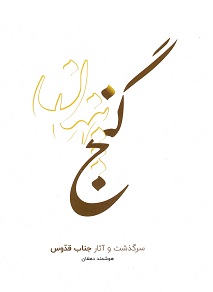 گنج پنهان
سرگذشت و آثار جناب قدّوس
هوشمند دهقان